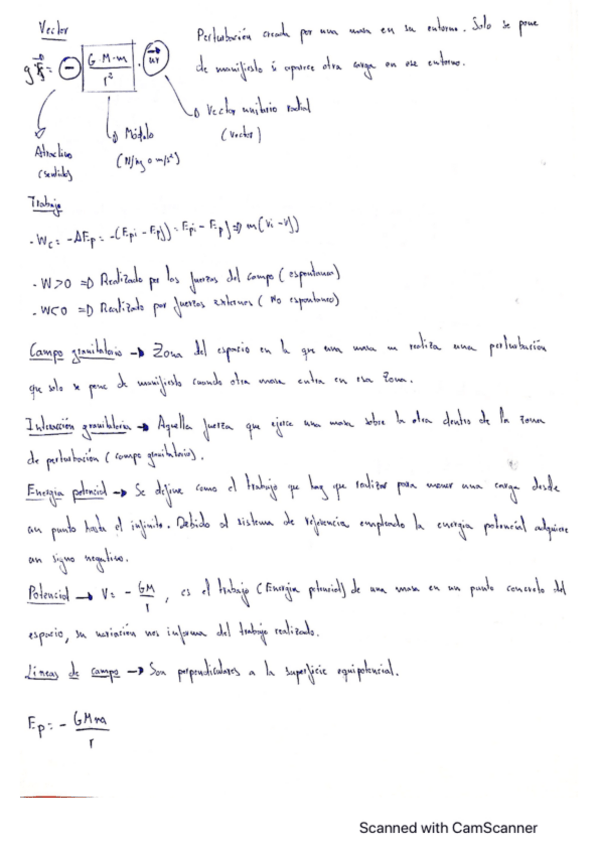 Vector
Perturbación creada por una masa en su entorno. Solo se pone
de manifiesto si aparece otra carga en ese entorno.
g = - G M·m / r² · ur
Vector unitario radial
(vector)
Módulo
(N/kg o m/s²)
Atractivo
(sentido)
Trabajo
- Wc = -ΔEp = -(Epi - Epf) = Epi - Epf => m(Vi - Vf)
- W>0 => Realizado por las fuerzas del campo (espontaneo)
- W<0 => Realizado por fuerzas externas (No espontaneo)
Campo gravitatorio → Zona del espacio en la que una masa m realiza una perturbación
que solo se pone de manifiesto cuando otra masa entra en esa zona.
Interacción gravitatoria → Aquella fuerza que ejerce una masa sobre la otra dentro de la zona
de perturbación (campo gravitatorio).
Energia potencial → Se define como el trabajo que hay que realizar para mover una carga desde
un punto hasta el infinito. Debido al sistema de referencia empleado la energia potencial adquiere
un signo negativo.
Potencial → V = - GM / r , es el trabajo (Energia potencial) de una masa en un punto concreto del
espacio, su variación nos informa del trabajo realizado.
Lineas de campo → Son perpendiculares a la superficie equipotencial.
Ep = - GMm / r
Scanned with CamScanner